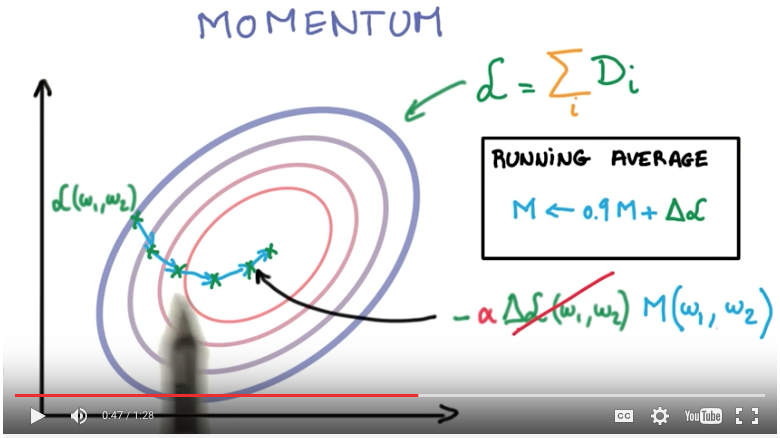 MOMENTUM
L = Σ Di
i
RUNNING AVERAGE
M ← 0.9 M + ΔL
L(ω₁,ω₂)
- α ΔL(ω₁,ω₂) M(ω₁, ω₂)
0:47 / 1:28
CC
YouTube